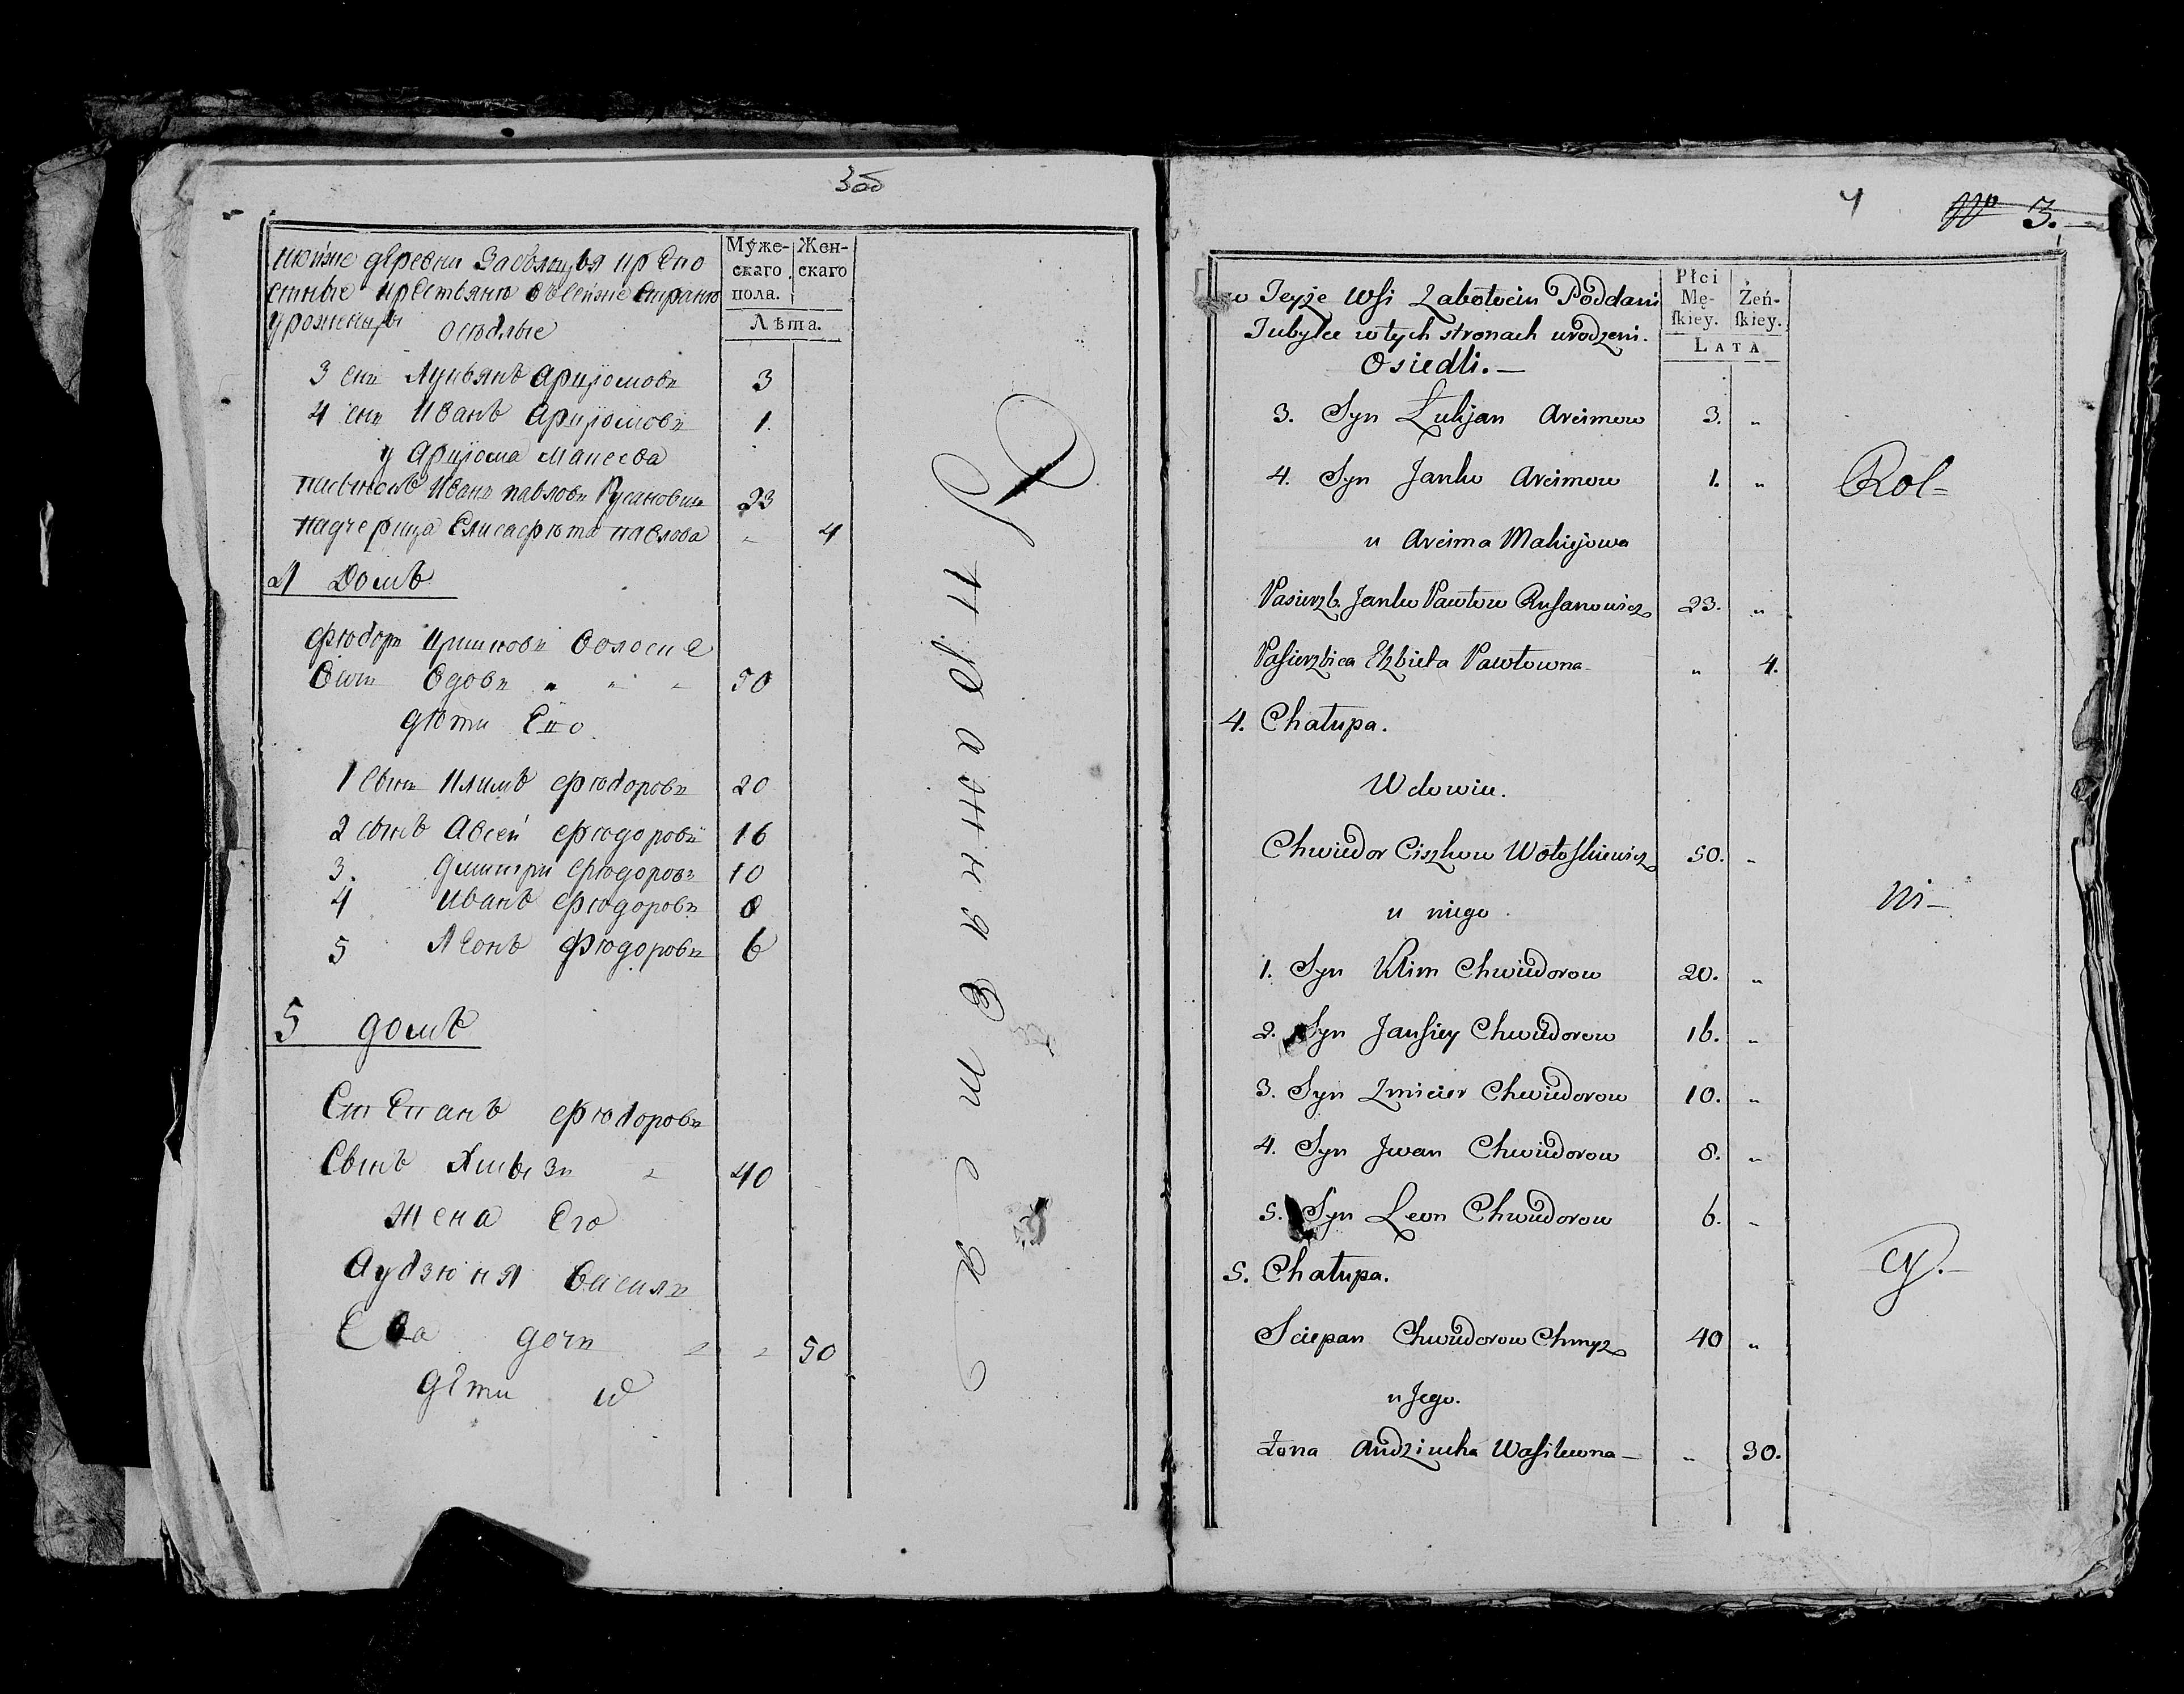 3об
тойже деревни Заболотья крепо
стные крестьяне въ сейже стране
урожены осѣдлые
Муже-
скаго
пола.
Жен-
скаго
Лѣта.
3 снъ Лукьянъ Арцiомовъ 3
4 снъ Иванъ Арцiомовъ 1.
у Арцiома Макеева
пасынокъ Иванъ павловъ Русановичъ 23
падчерица Елисафюта павлова " 4
4 Домъ
Фюдоръ Цишковъ Волоске
вичъ Вдовъ " " " 50
дюти Его
1 сынъ Климъ Фюдоровъ 20
2 сынъ Авсей Фюдоровъ 16
3. Дмитри Фюдоровъ 10
4 Иванъ Фюдоровъ 8
5 Леонъ Фюдоровъ 6
5 домъ
Степанъ Фюдоровъ
Сынъ Хмызъ " 40
жена Его
Аудзюня Васили
Ева дочъ " " 50
дети
4
No 3.
w Teyże Wsi Zabołociu Poddani
Tubylce w tych stronach urodzeni.
Osiedli. —
Płci
Mę-
skiey.
Żeń-
skiey.
LATA
3. Syn Łukjan Arcimow 3. "
4. Syn Janko Arcimow 1. "
Rol=
u Arcima Makiejowa
Pasierzb. Janko Pawłow Rusanowicz 23. "
Pasierzbica Elzbieta Pawłowna " 4.
4. Chałupa.
Wdowiec.
Chwiedor Ciszkow Wołoskiewicz 50. "
ni—
u niego
1. Syn Klim Chwiedorow 20. "
2. Syn Jausiey Chwiedorow 16. "
3. Syn Zmicier Chwiedorow 10. "
4. Syn Jwan Chwiedorow 8. "
5. Syn Leon Chwiedorow 6. "
cy.—
5. Chałupa.
Sciepan Chwiedorow Chmyz 40 "
u Jego.
Żona Audziucha Wasilewna — " 30.